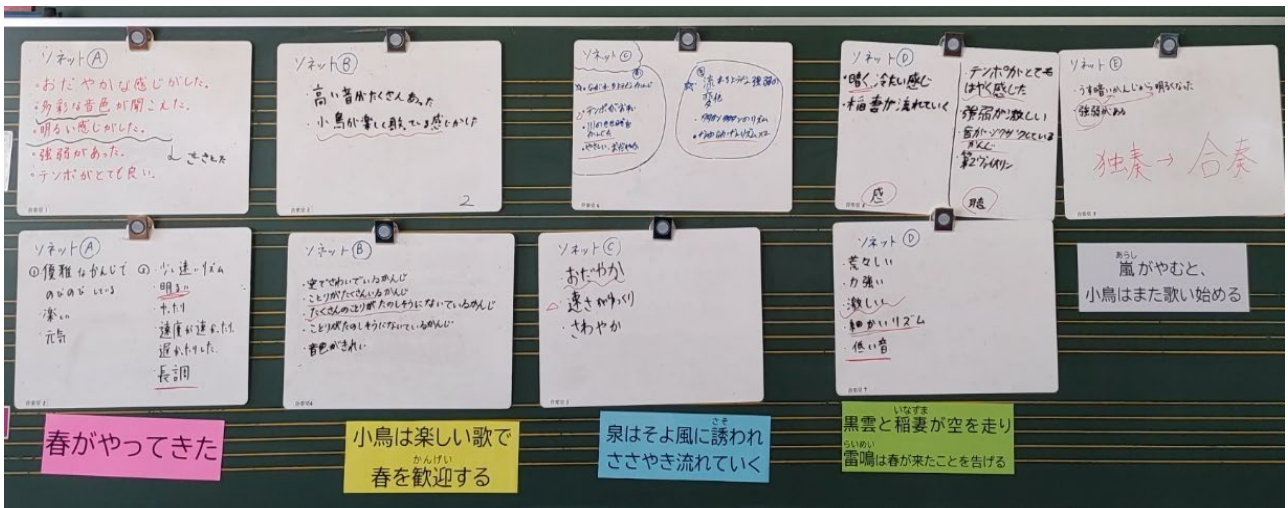 ソネットⒶ
・おだやかな感じがした。
・多彩な音色が聞こえた。
・明るい感じがした。
・強弱があった。
・テンポがとても良い。
音楽室1
ソネットⒷ
高い音がたくさんあった
・小鳥が楽しく歌っている感じがした
2
ソネットⒸ
・テンポがおそい
・やさしい、おだやか
流れ
強弱の
変化
ソネットⒹ
・暗く冷たい感じ
・稲妻が流れていく
感
テンポがとても
はやく感じた
強弱が激しい
音がジグザグしている
かんじ
第2ヴァイオリン
聴
ソネットⒺ
・うす暗いかんじから明るくなった
・強弱がある
独奏→合奏
ソネットⒶ
①優雅なかんじで
のびのびしている
・楽しい
・元気
②少し速いリズム
・明るい
・速度が速かったり
遅かったりした。
・長調
ソネットⒷ
・空でさわいでいるかんじ
・ことりがたくさんいるかんじ
・たくさんのことりがたのしそうにないているかんじ
・ことりがたのしそうにないているかんじ
・音色がきれい
ソネットⒸ
・おだやか
・速さがゆっくり
・さわやか
ソネットⒹ
・荒々しい
・力強い
・激しい
・細かいリズム
・低い音
嵐がやむと、
あらし
小鳥はまた歌い始める
春がやってきた
小鳥は楽しい歌で
かんげい
春を歓迎する
さそ
泉はそよ風に誘われ
ささやき流れていく
いなずま
黒雲と稲妻が空を走り
らいめい
雷鳴は春が来たことを告げる